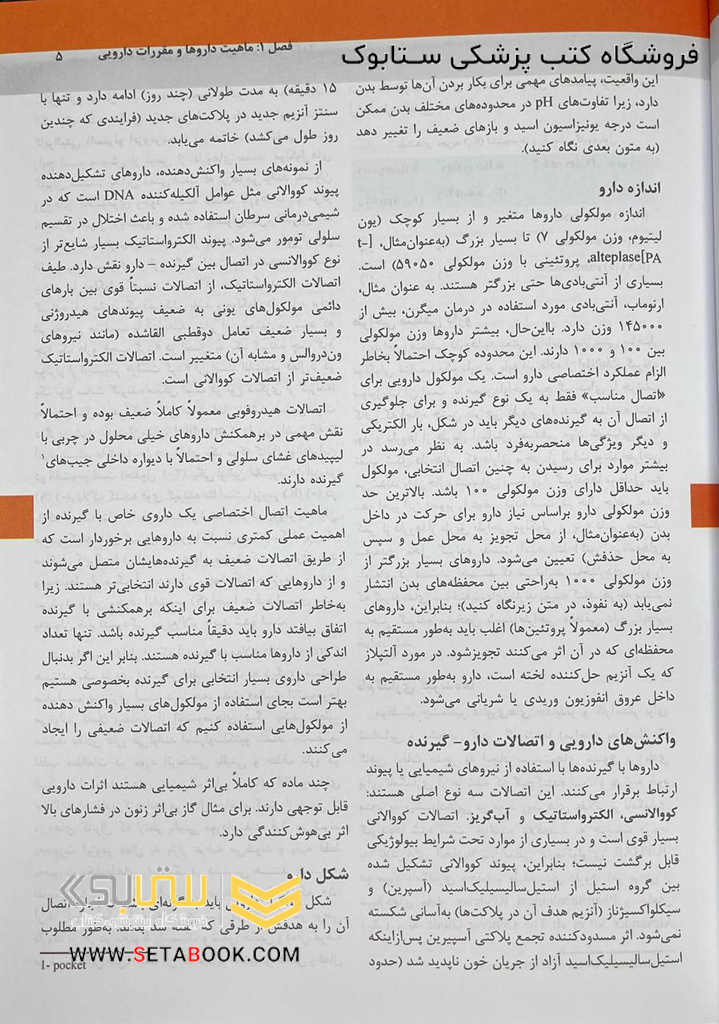 فروشگاه کتب پزشکی ستابوک
فصل ۱: ماهیت داروها و مقررات دارویی
۵
این واقعیت، پیامدهای مهمی برای بکار بردن آن‌ها توسط بدن
دارد، زیرا تفاوت‌های pH در محدوده‌های مختلف بدن ممکن
است درجه یونیزاسیون اسید و بازهای ضعیف را تغییر دهد
(به متون بعدی نگاه کنید).
اندازه دارو
اندازه مولکولی داروها متغیر و از بسیار کوچک (یون
لیتیوم، وزن مولکولی ۷) تا بسیار بزرگ (به‌عنوان‌مثال، [t-
alteplase[PA، پروتئینی با وزن مولکولی ۵۹۰۵۰) است.
بسیاری از آنتی‌بادی‌ها حتی بزرگتر هستند. به عنوان مثال،
ارنوماب، آنتی‌بادی مورد استفاده در درمان میگرن، بیش از
۱۴۵۰۰۰ وزن دارد. بااین‌حال، بیشتر داروها وزن مولکولی
بین ۱۰۰ و ۱۰۰۰ دارند. این محدوده کوچک احتمالاً بخاطر
الزام عملکرد اختصاصی دارو است. یک مولکول دارویی برای
«اتصال مناسب» فقط به یک نوع گیرنده و برای جلوگیری
از اتصال آن به گیرنده‌های دیگر باید در شکل، بار الکتریکی
و دیگر ویژگی‌ها منحصربه‌فرد باشد. به نظر می‌رسد در
بیشتر موارد برای رسیدن به چنین اتصال انتخابی، مولکول
باید حداقل دارای وزن مولکولی ۱۰۰ باشد. بالاترین حد
وزن مولکولی دارو براساس نیاز دارو برای حرکت در داخل
بدن (به‌عنوان‌مثال، از محل تجویز به محل عمل و سپس
به محل حذفش) تعیین می‌شود. داروهای بسیار بزرگتر از
وزن مولکولی ۱۰۰۰ به‌راحتی بین محفظه‌های بدن انتشار
نمی‌یابد (به نفوذ، در متن زیرنگاه کنید)؛ بنابراین، داروهای
بسیار بزرگ (معمولاً پروتئین‌ها) اغلب باید به‌طور مستقیم به
محفظه‌ای که در آن اثر می‌کنند تجویزشود. در مورد آلتپلاز
که یک آنزیم حل‌کننده لخته است، دارو به‌طور مستقیم به
داخل عروق انفوزیون وریدی یا شریانی می‌شود.
واکنش‌های دارویی و اتصالات دارو- گیرنده
داروها با گیرنده‌ها با استفاده از نیروهای شیمیایی یا پیوند
ارتباط برقرار می‌کنند. این اتصالات سه نوع اصلی هستند:
کووالانسی، الکترواستاتیک و آب‌گریز. اتصالات کووالانی
بسیار قوی است و در بسیاری از موارد تحت شرایط بیولوژیکی
قابل برگشت نیست؛ بنابراین، پیوند کووالانی تشکیل شده
بین گروه استیل از استیل‌سالیسیلیک‌اسید (آسپرین) و
سیکلواکسیژناز (آنزیم هدف آن در پلاکت‌ها) به‌آسانی شکسته
نمی‌شود. اثر مسدودکننده تجمع پلاکتی آسپیرین پس‌ازاینکه
استیل‌سالیسیلیک‌اسید آزاد از جریان خون ناپدید شد (حدود
۱۵ دقیقه) به مدت طولانی (چند روز) ادامه دارد و تنها با
سنتز آنزیم جدید در پلاکت‌های جدید (فرایندی که چندین
روز طول می‌کشد) خاتمه می‌یابد.
از نمونه‌های بسیار واکنش‌دهنده، داروهای تشکیل‌دهنده
پیوند کووالانی مثل عوامل آلکیله‌کننده DNA است که در
شیمی‌درمانی سرطان استفاده شده و باعث اختلال در تقسیم
سلولی تومور می‌شود. پیوند الکترواستاتیک بسیار شایع‌تر از
نوع کووالانسی در اتصال بین گیرنده – دارو نقش دارد. طیف
اتصالات الکترواستاتیک، از اتصالات نسبتاً قوی بین بارهای
دائمی مولکول‌های یونی به ضعیف پیوندهای هیدروژنی
و بسیار ضعیف تعامل دوقطبی القاشده (مانند نیروهای
ون‌دروالس و مشابه آن) متغییر است. اتصالات الکترواستاتیک
ضعیف‌تر از اتصالات کووالانی است.
اتصالات هیدروفوبی معمولاً کاملاً ضعیف بوده و احتمالاً
نقش مهمی در برهمکنش داروهای خیلی محلول در چربی با
لیپیدهای غشای سلولی و احتمالاً با دیواره داخلی جیب‌های۱
گیرنده دارند.
ماهیت اتصال اختصاصی یک داروی خاص با گیرنده از
اهمیت عملی کمتری نسبت به داروهایی برخوردار است که
از طریق اتصالات ضعیف به گیرنده‌هایشان متصل می‌شوند
و از داروهایی که اتصالات قوی دارند انتخابی‌تر هستند. زیرا
به‌خاطر اتصالات ضعیف برای اینکه برهمکنشی با گیرنده
اتفاق بیافتد دارو باید دقیقاً مناسب گیرنده باشد. تنها تعداد
اندکی از داروها مناسب با گیرنده هستند. بنابر این اگر بدنبال
طراحی داروی بسیار انتخابی برای گیرنده بخصوصی هستیم
بهتر است بجای استفاده از مولکول‌های بسیار واکنش دهنده
از مولکول‌هایی استفاده کنیم که اتصالات ضعیفی را ایجاد
می‌کنند.
چند ماده که کاملاً بی‌اثر شیمیایی هستند اثرات دارویی
قابل توجهی دارند. برای مثال گاز بی‌اثر زنون در فشارهای بالا
اثر بی‌هوش‌کنندگی دارد.
شکل دارو
شکل باید اتصال
آن را به هدفش از طرقی که به‌طور مطلوب
ستابوک
WWW.SETABOOK.COM
1- pocket